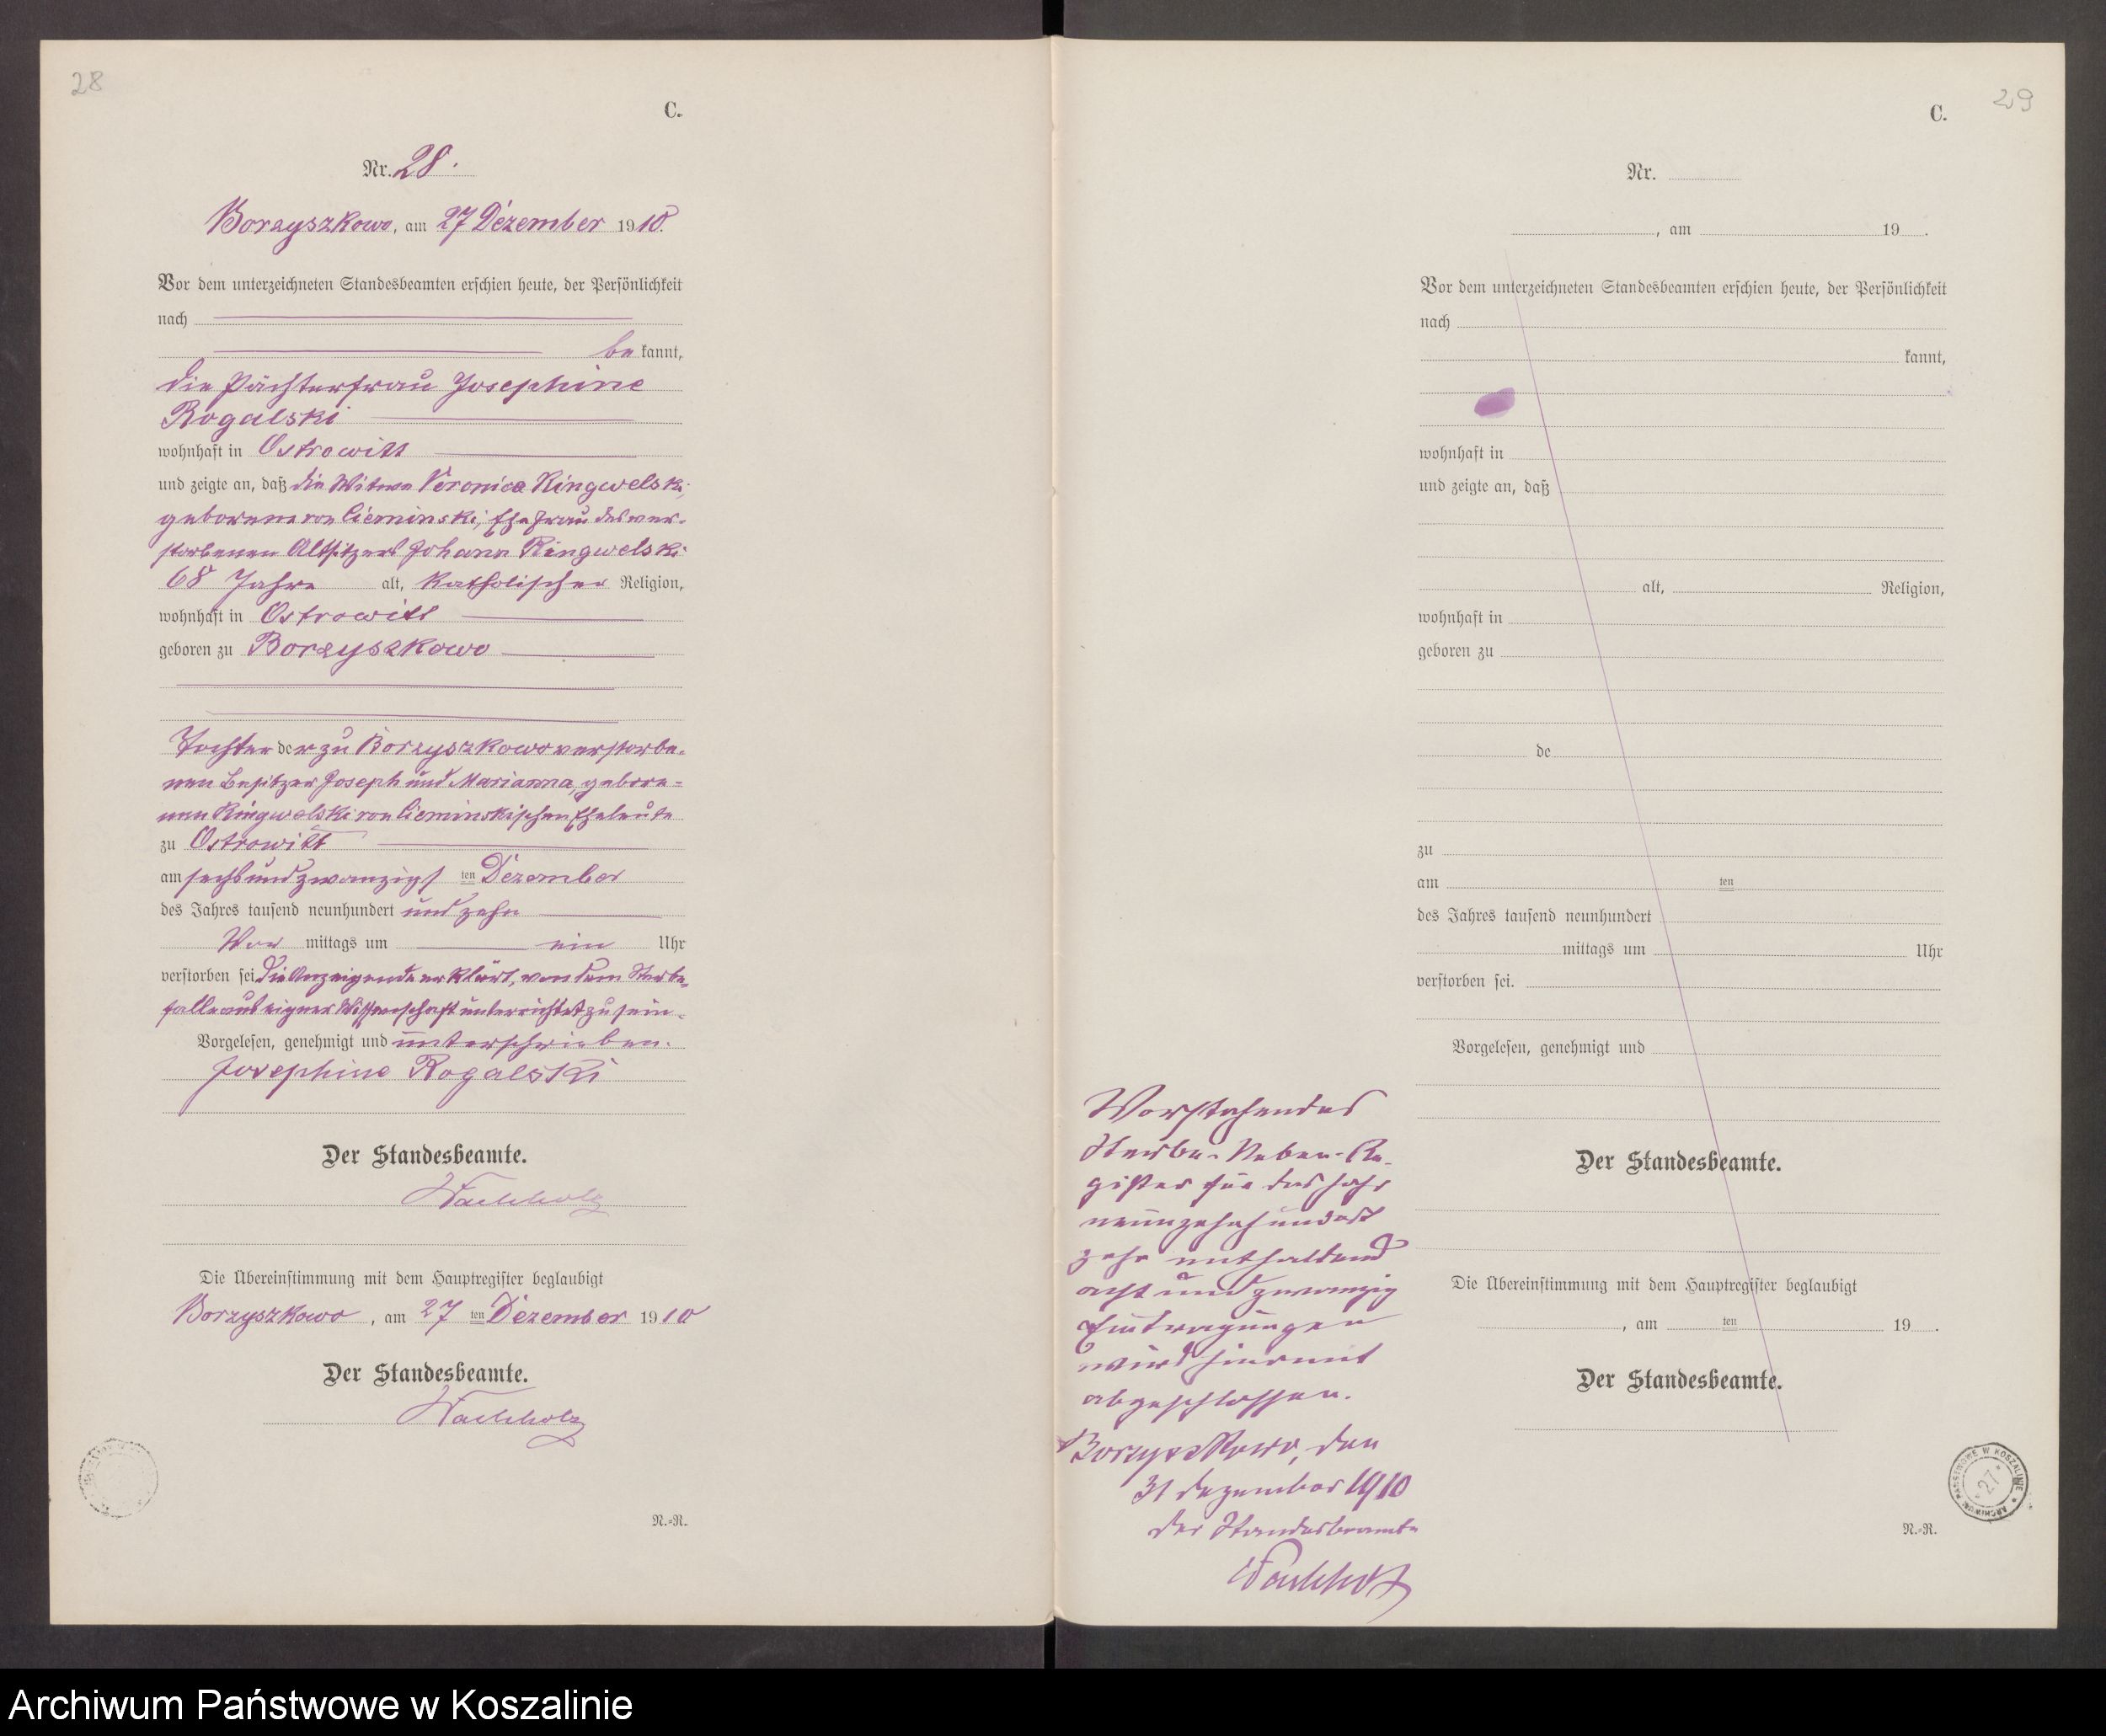 28
C.
Nr. 28.
Borzyszkowo, am 27 Dezember 1910.
Vor dem unterzeichneten Standesbeamten erschien heute, der Persönlichkeit
nach
be kannt,
die Pächterfrau Josephine
Rogalski
wohnhaft in Ostrowitt
und zeigte an, daß die Witwe Veronica Ringwelski,
geborene von Cieminski, Ehefrau des ver-
storbenen Altsitzers Johann Ringwelski
68 Jahre alt, katholischer Religion,
wohnhaft in Ostrowitt
geboren zu Borzyszkowo
Tochter der zu Borzyszkowo verstorbe-
nen Besitzer Joseph und Marianna, gebore-
nen Ringwelski von Cieminskischen Eheleute
zu Ostrowitt
am sechsundzwanzigsten Dezember
des Jahres tausend neunhundert und zehn
Vor mittags um ein Uhr
verstorben sei. Die Anzeigende erklärt, von dem Sterbe-
falle aus eigner Wissenschaft unterrichtet zu sein.
Vorgelesen, genehmigt und unterschrieben.
Josephine Rogalski
Der Standesbeamte.
Wachholz
Die Übereinstimmung mit dem Hauptregister beglaubigt
Borzyszkowo, am 27 ten Dezember 1910
Der Standesbeamte.
Wachholz
N.-R.
29
C.
Nr.
, am 19 .
Vor dem unterzeichneten Standesbeamten erschien heute, der Persönlichkeit
nach
kannt,
wohnhaft in
und zeigte an, daß
alt, Religion,
wohnhaft in
geboren zu
de
zu
am ten
des Jahres tausend neunhundert
mittags um Uhr
verstorben sei.
Vorgelesen, genehmigt und
Der Standesbeamte.
Die Übereinstimmung mit dem Hauptregister beglaubigt
, am ten 19 .
Der Standesbeamte.
N.-R.
Vorstehendes
Sterbe-Neben-Re-
gister für das Jahr
neunzehnhundert
zehn enthaltend
acht und zwanzig
Eintragungen
wird hiermit
abgeschlossen.
Borzyszkowo, den
31 Dezember 1910
Der Standesbeamte
Wachholz
ARCHIWUM PAŃSTWOWE W KOSZALINIE
27
Archiwum Państwowe w Koszalinie